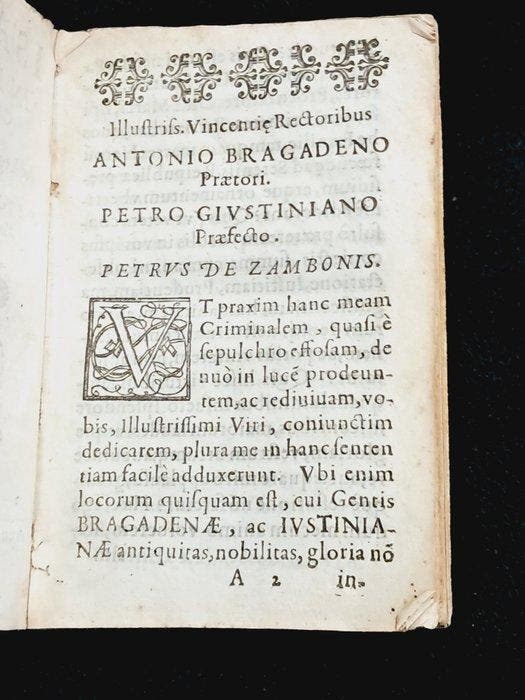 Illustriss. Vincentię Rectoribus
ANTONIO BRAGADENO
Prætori.
PETRO GIVSTINIANO
Præfecto.
PETRVS DE ZAMBONIS.
VT praxim hanc meam
Criminalem, quasi è
sepulchro effosam, de
nuò in lucẽ prodeun-
tem, ac rediuiuam, vo-
bis, Illustrissimi Viri, coniunctim
dedicarem, plura me in hanc senten
tiam facilè adduxerunt. Vbi enim
locorum quisquam est, cui Gentis
BRAGADENÆ, ac IVSTINIA-
NÆ antiquitas, nobilitas, gloria nõ
A 2 in-